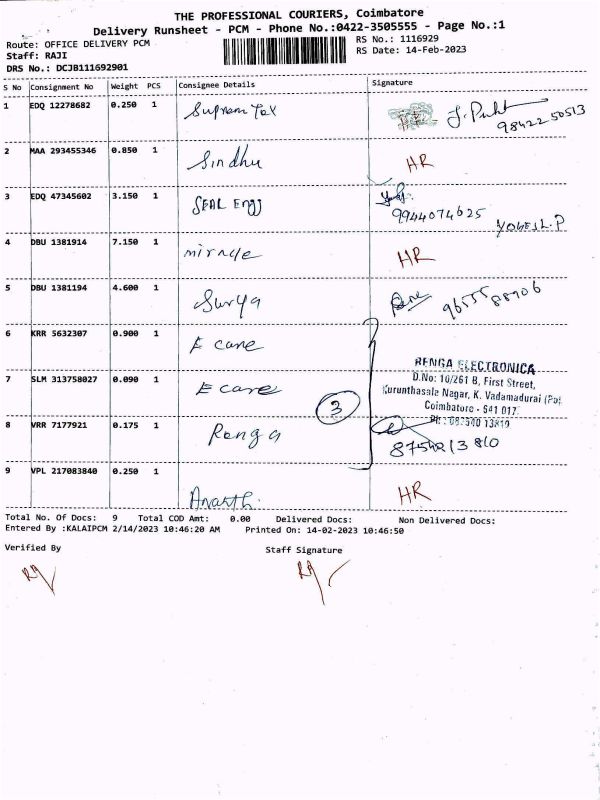 THE PROFESSIONAL COURIERS, Coimbatore
Delivery Runsheet - PCM - Phone No.:0422-3505555 - Page No.:1
Route: OFFICE DELIVERY PCM
RS No.: 1116929
Staff: RAJI
RS Date: 14-Feb-2023
DRS No.: DCJB111692901
S No Consignment No Weight PCS Consignee Details Signature
1 EDQ 12278682 0.250 1 Suprem Tex
98422 50513
2 MAA 293455346 0.850 1 Sindhu HR
3 EDQ 47345602 3.150 1 SEAL Engg
9944074625
YOGESH.P
4 DBU 1381914 7.150 1 miracle HR
5 DBU 1381194 4.600 1 Surya 96555 88906
6 KRR 5632307 0.900 1 E care
7 SLM 313758027 0.090 1 E care
3
RENGA ELECTRONICA
D.No: 10/261 B, First Street,
Kurunthasale Nagar, K. Vadamadurai (Po)
Coimbatore - 641 017.
8 VRR 7177921 0.175 1 Renga
9 VPL 217083840 0.250 1 Ananth. HR
Total No. Of Docs: 9 Total COD Amt: 0.00 Delivered Docs: Non Delivered Docs:
Entered By :KALAIPCM 2/14/2023 10:46:20 AM Printed On: 14-02-2023 10:46:50
Verified By Staff Signature